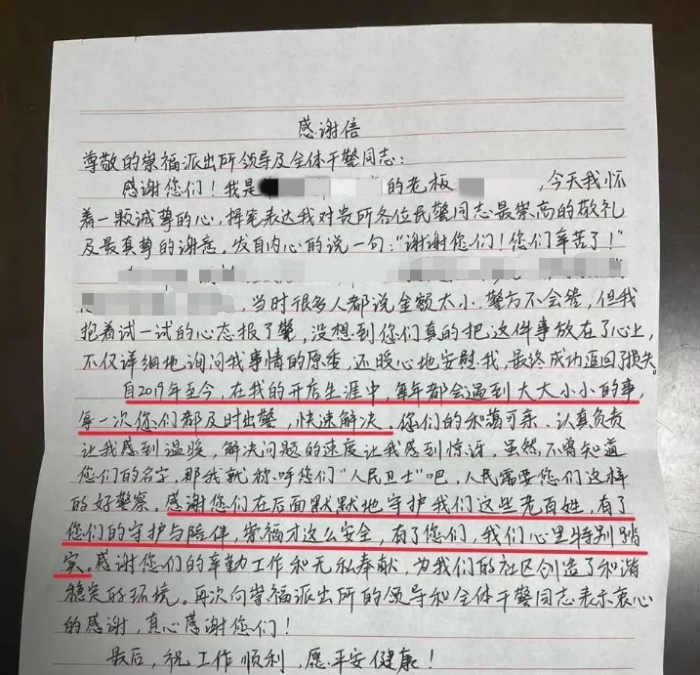 感谢信
尊敬的崇福派出所领导及全体干警同志：
感谢您们！我是的老板，今天我怀
着一颗诚挚的心，挥笔表达我对贵所各位民警同志最崇高的敬礼
及最真挚的谢意，发自内心的说一句：“谢谢您们！您们辛苦了！”
，当时很多人都说金额太小，警方不会管，但我
抱着试一试的心态报了警，没想到您们真的把这件事放在了心上，
不仅详细地询问我事情的原委，还暖心地安慰我，最终成功追回了损失。
自2019年至今，在我的开店生涯中，每年都会遇到大大小小的事，
每一次您们都及时出警，快速解决。您们的和蔼可亲、认真负责
让我感到温暖，解决问题的速度让我感到惊讶，虽然不曾知道
您们的名字，那我就称呼您们“人民卫士”吧，人民需要您们这样
的好警察，感谢您们在后面默默地守护我们这些老百姓，有了
您们的守护与陪伴，崇福才这么安全，有了您们，我们心里特别踏
实。感谢您们的辛勤工作和无私奉献，为我们的社区创造了和谐
稳定的环境。再次向崇福派出所的领导和全体干警同志表示衷心
的感谢，真心感谢您们！
最后，祝工作顺利，愿平安健康！